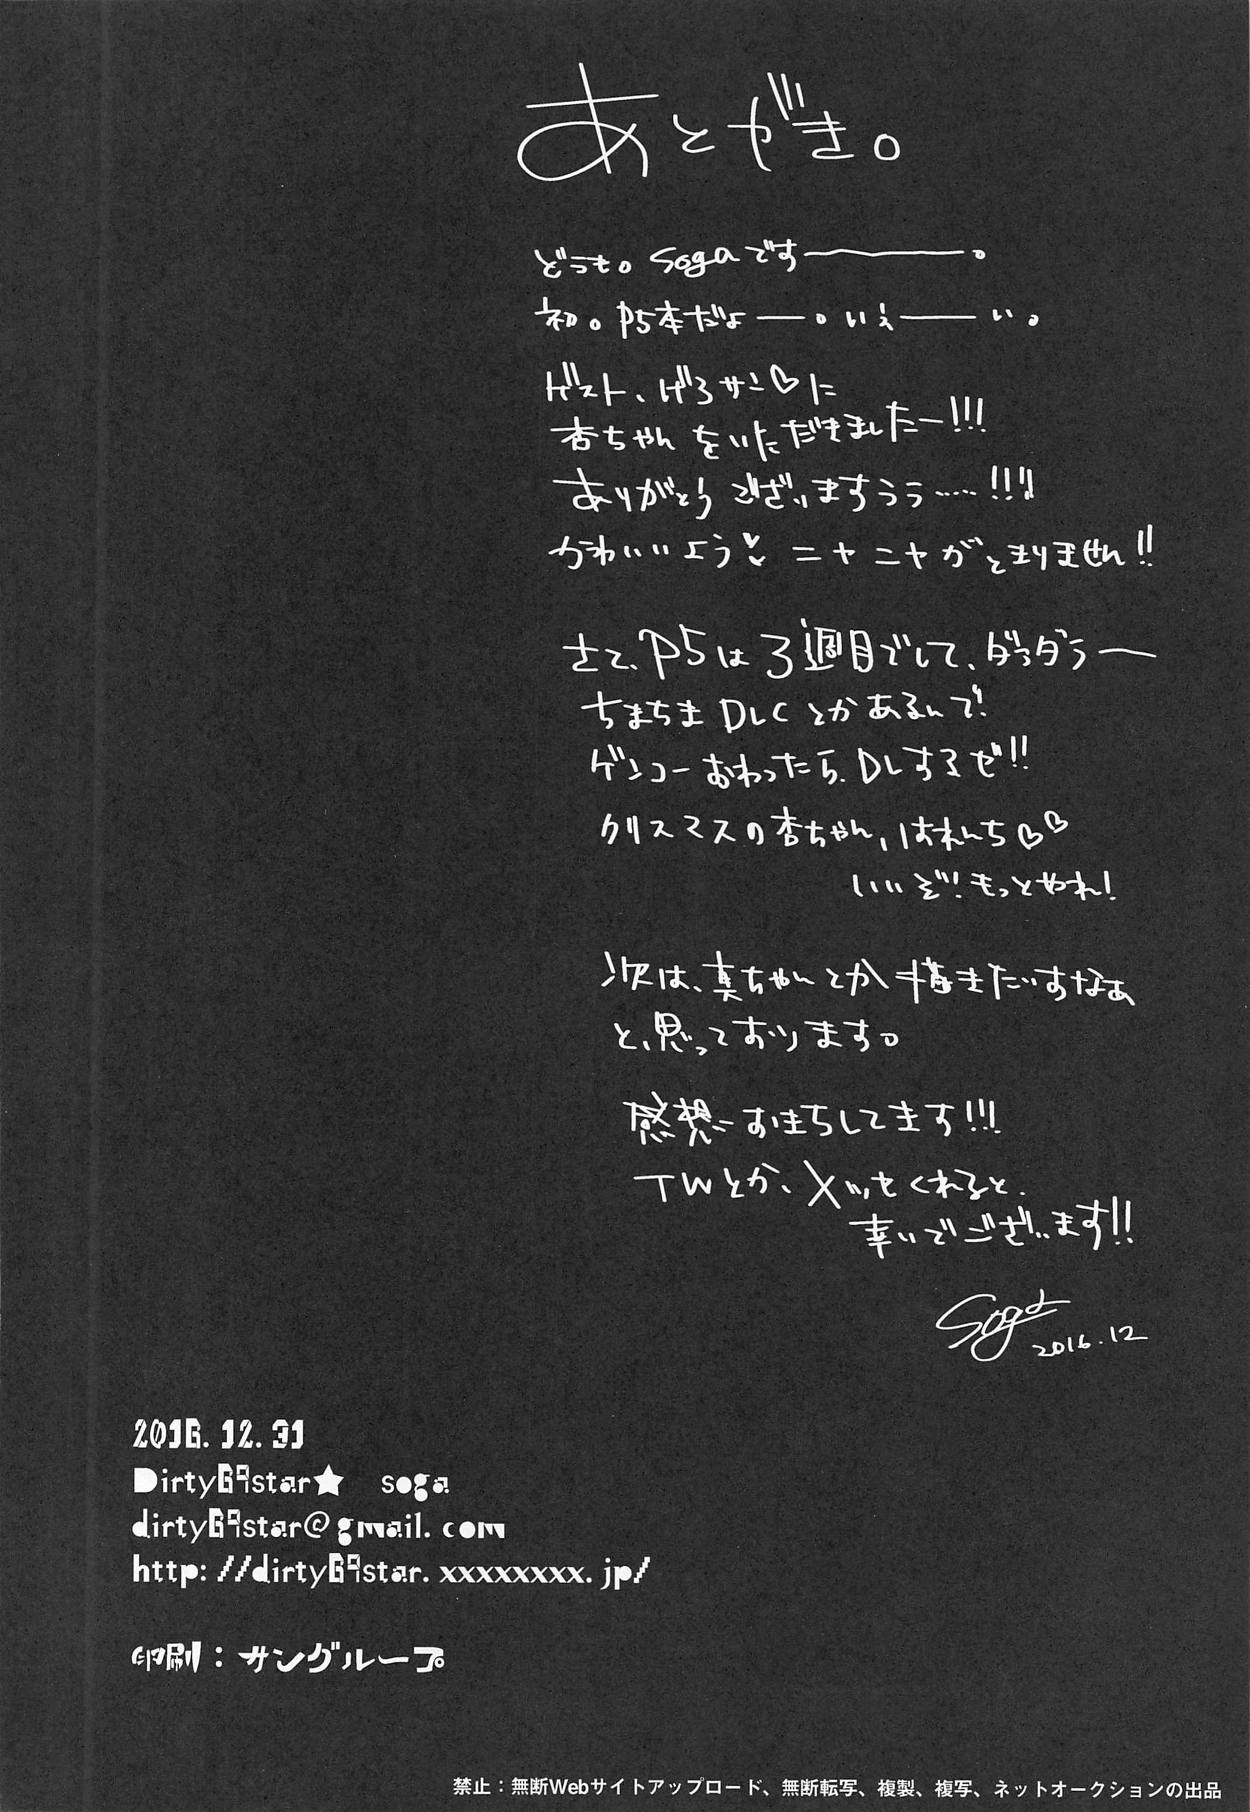 あとがき。
どうも。sogaです――――。
初。P5本だよ――。いえ――い。
ゲスト、げろサン♡に
杏ちゃんをいただきましたー!!!
ありがとうございますうぅ……!!!
かわいいよう♡ ニヤニヤがとまりません!!
さて、P5は3週目でして、ダラダラ―
ちまちまDLCとかあるんで!
ゲンコーおわったら、DLするぜ!!
クリスマスの杏ちゃん、はれんち♡♡
いいぞ!もっとやれ!
次は、真ちゃんとか描きたいすなあ
と、思っております。
感想ーおまちしてます!!!
TWとか、メッセくれると、
幸いでございます!!
Soga
2016.12
2016.12.31
Dirty69star★ soga
dirty69star@gmail.com
http://dirty69star.xxxxxxxx.jp/
印刷：サングループ
禁止：無断Webサイトアップロード、無断転写、複製、複写、ネットオークションの出品